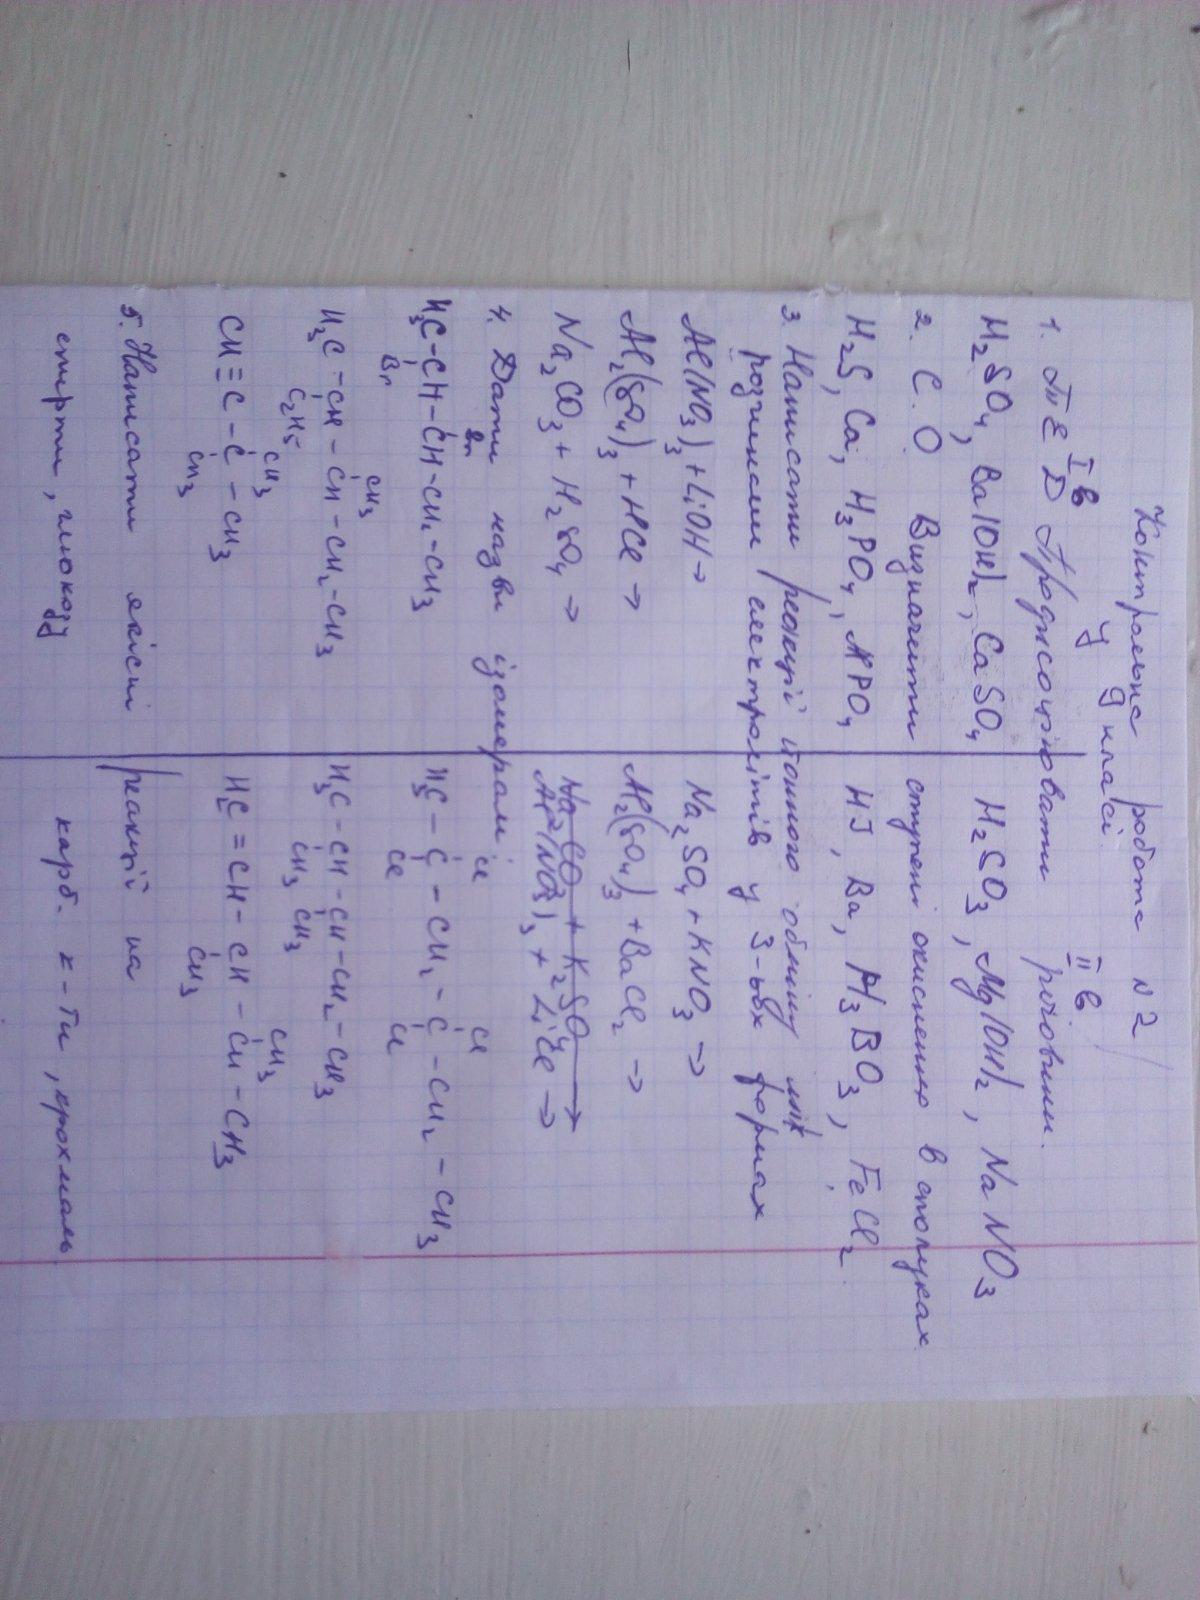 Контрольна робота N2
у 9 класі.
I в II в
1. Т Е Д Продисоціювати речовини.
H2SO4, Ba(OH)2, CaSO4 H2SO3, Mg(OH)2, NaNO3
2. С.О. Визначити ступені окиснення в сполуках
H2S, Ca, H3PO4, APO4 HJ, Ba, H3BO3, FeCl2
3. Написати реакції йонного обміну між
розчинами електролітів у 3-ьох формах
Al(NO3)3 + LiOH → Na2SO4 + KNO3 →
Al2(SO4)3 + HCl → Al2(SO4)3 + BaCl2 →
Na2CO3 + H2SO4 → Na2CO3 + K2SO4 →
Al(NO3)3 + LiCl →
4. Дати назви ізомерам:
Br Cl Cl
H3C-CH-CH-CH2-CH3 H3C-C-CH2-C-CH2-CH3
Br Cl Cl
CH3
H3C-CH-CH-CH2-CH3 H3C-CH-CH-CH2-CH3
C2H5 CH3 CH3
CH3 CH3
CH≡C-C-CH3 H2C=CH-CH-CH-CH3
CH3 CH3
5. Написати якісні реакції на
спирти, глюкозу карб. к-ти, крохмаль